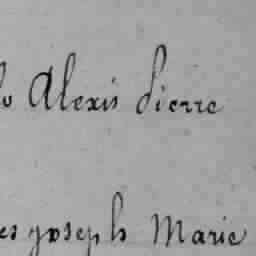 Alexis Pierre
es joseph Marie